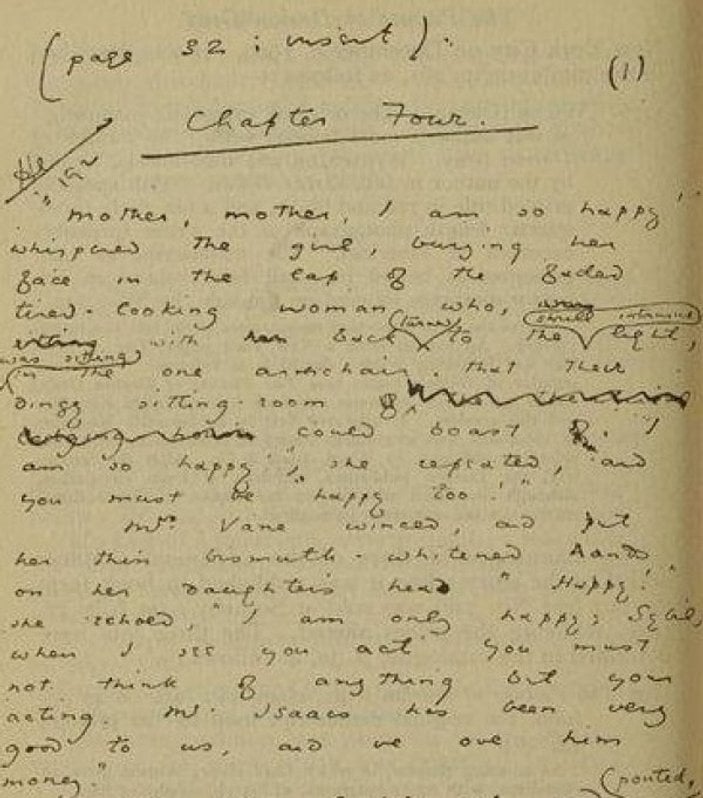 (page 32 : insert).
(1)
Chapter Four.
"Mother, mother, I am so happy"
whispered the girl, burying her
face in the lap of the faded
tired-looking woman who,
(turned) (shrill intrusive)
sitting with her back to the light,
was sitting
in the one armchair that their
dingy sitting-room of
could boast of. "I
am so happy", she repeated, "and
you must be happy too!"
Mrs. Vane winced, and put
her thin bismuth-whitened hands
on her daughter's head "Happy!"
she echoed, "I am only happy, Sybil,
when I see you act you must
not think of anything but your
acting. Mr. Isaacs has been very
good to us, and we owe him
money."
(pouted,